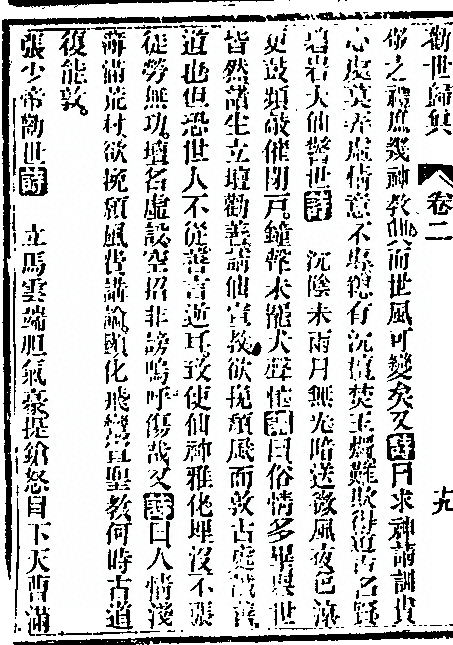 勸世歸真 卷二 十九
帝之禮庶幾神教興而世風可變矣又詩曰求神請訓貴
心處莫弄虛情意不專總有沉檀焚玉燭難欺得道古名賢
碧岩大仙警世詩 沉陰未雨月無光暗送微風夜色涼
更鼓頻敲催閉戶鐘聲未罷犬聲忙訓曰俗情多舉世
皆然諸生立壇勸善請仙宣教欲挽頹風而敦古處哉善
道也但恐世人不從善言逆耳致使仙神雅化埋沒不張
徒勞無功壇名虛設空招非謗嗚呼傷哉又詩曰人情淺
薄滿荒村欲挽頹風費講論顯化飛鸞宣聖教何時古道
復能敦
張少帝勸世詩 立馬雲端胆氣豪提鎗怒目下天曹滿